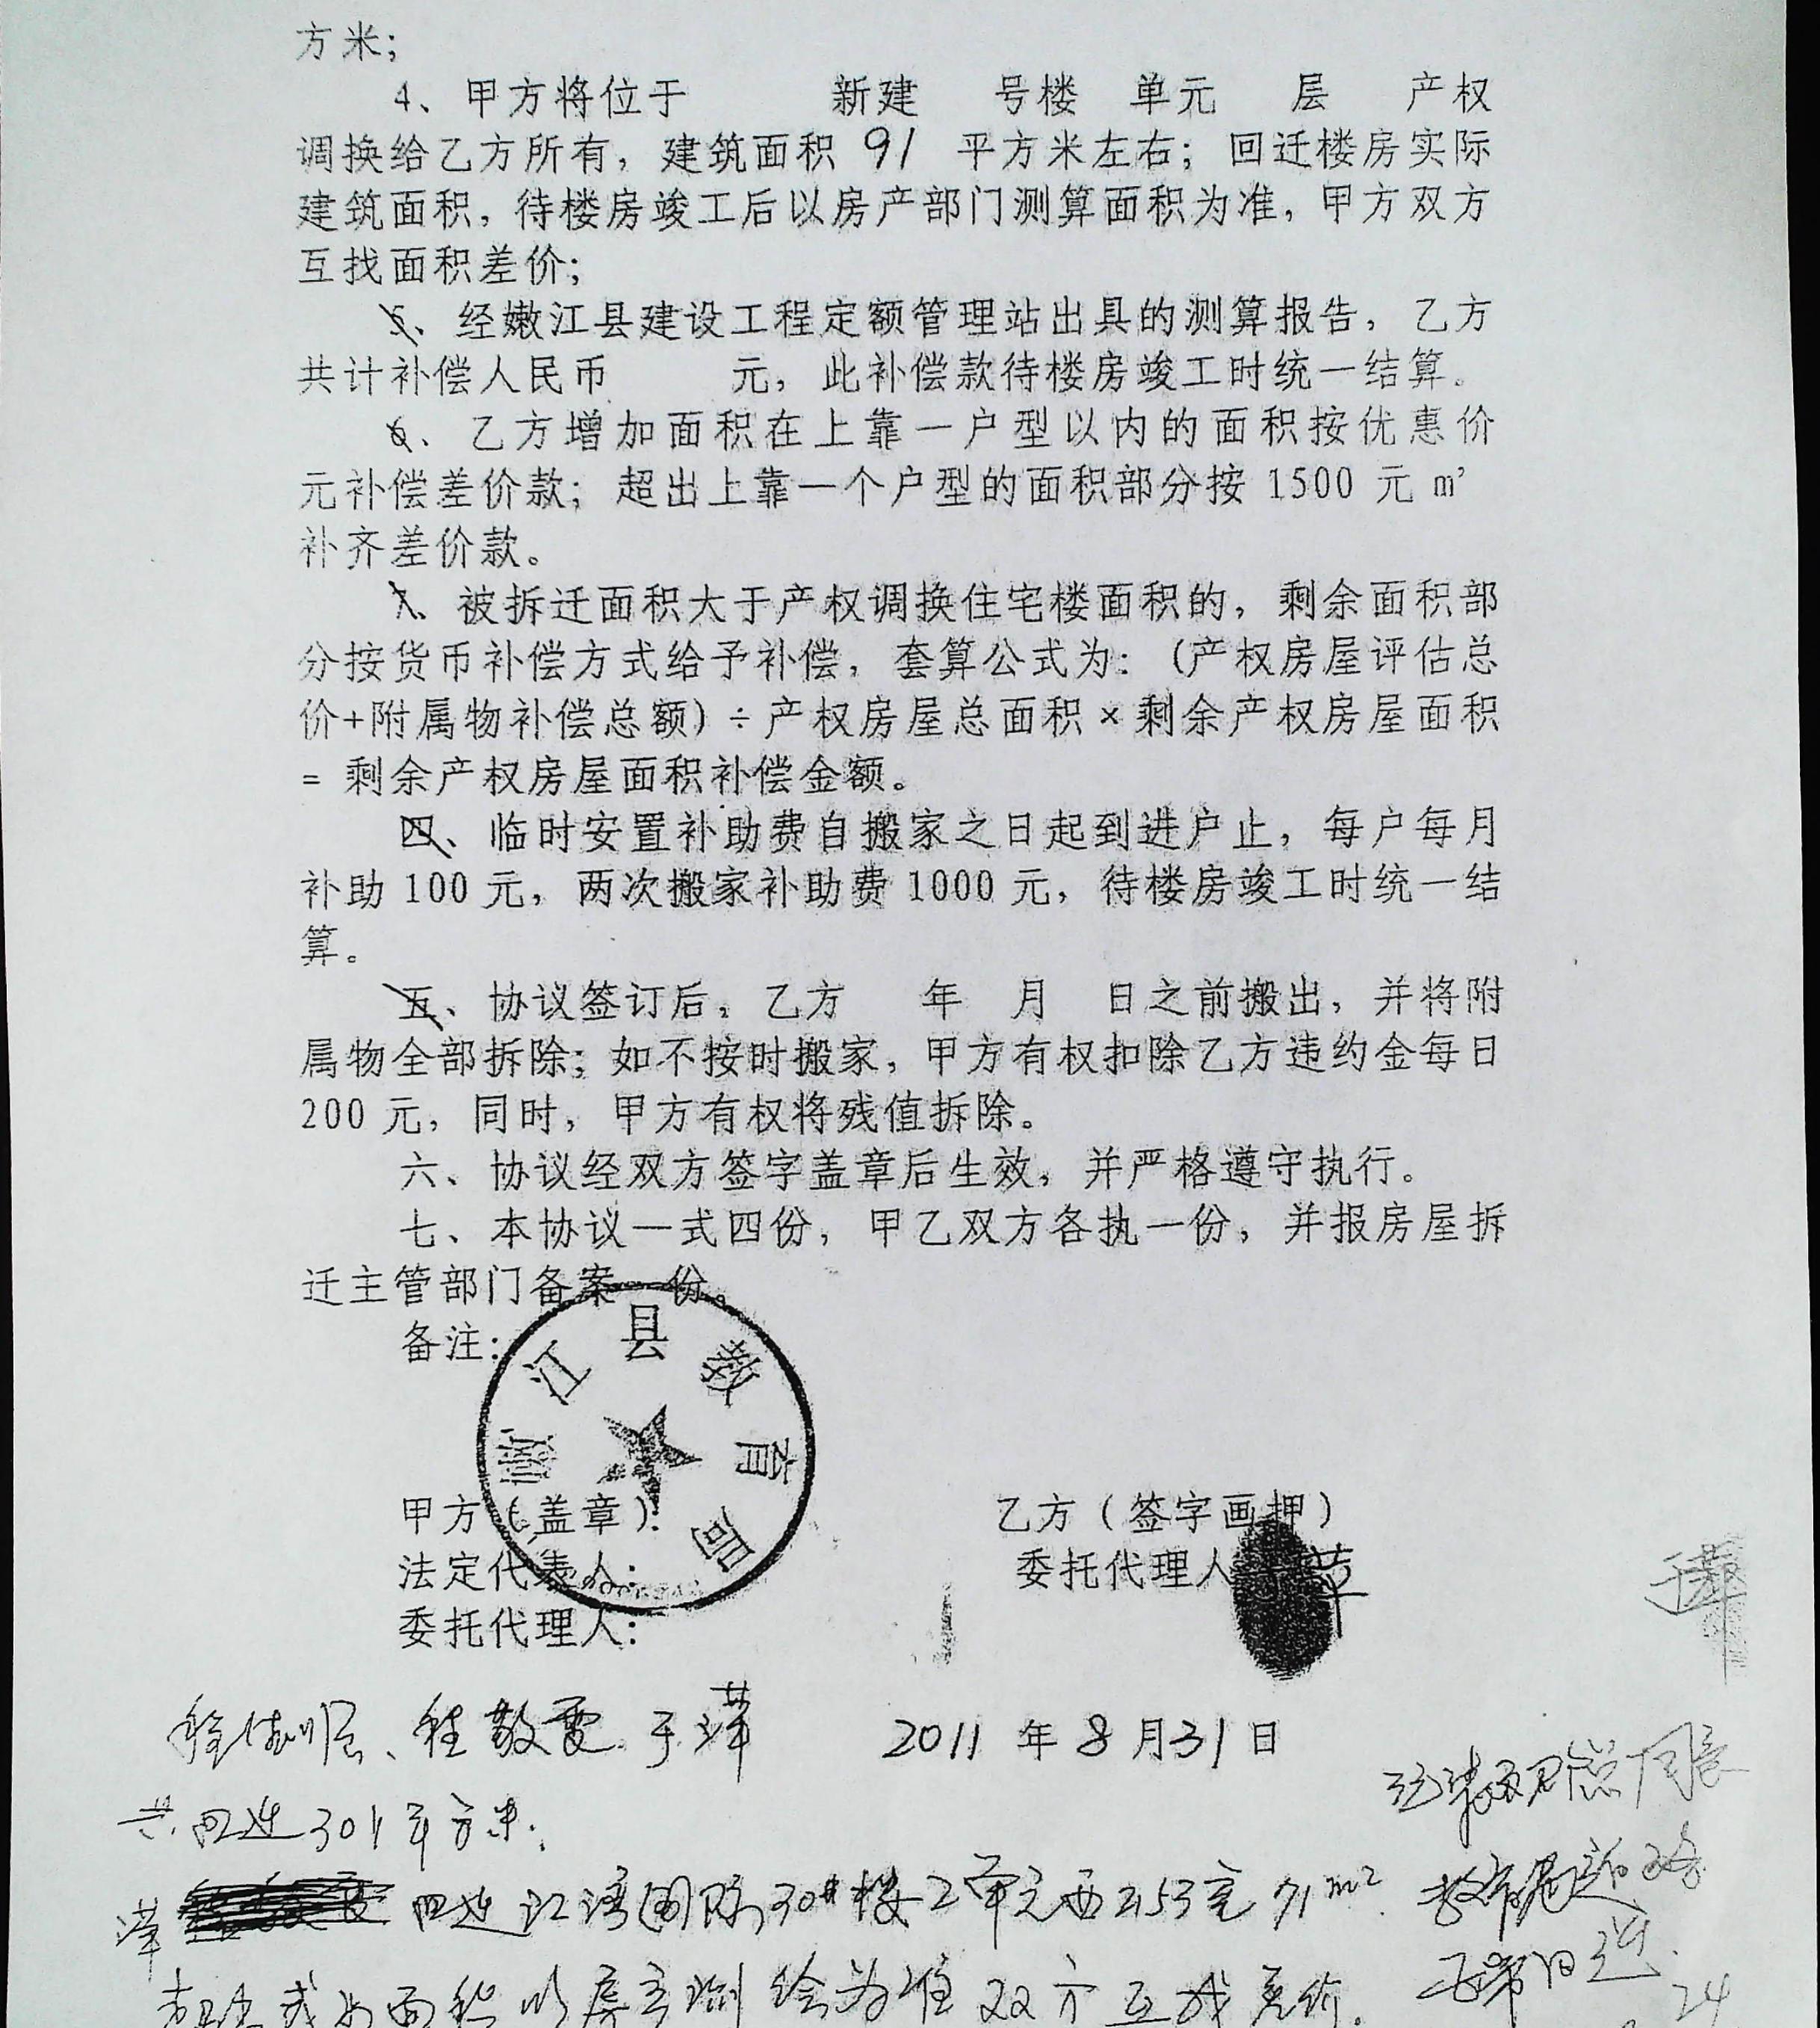 方米；
4、甲方将位于 新建 号楼 单元 层 产权
调换给乙方所有，建筑面积 91 平方米左右；回迁楼房实际
建筑面积，待楼房竣工后以房产部门测算面积为准，甲方双方
互找面积差价；
5、经嫩江县建设工程定额管理站出具的测算报告，乙方
共计补偿人民币 元，此补偿款待楼房竣工时统一结算。
6、乙方增加面积在上靠一户型以内的面积按优惠价
元补偿差价款；超出上靠一个户型的面积部分按 1500 元 m²
补齐差价款。
7、被拆迁面积大于产权调换住宅楼面积的，剩余面积部
分按货币补偿方式给予补偿，套算公式为：（产权房屋评估总
价+附属物补偿总额）÷产权房屋总面积×剩余产权房屋面积
= 剩余产权房屋面积补偿金额。
四、临时安置补助费自搬家之日起到进户止，每户每月
补助 100 元，两次搬家补助费 1000 元，待楼房竣工时统一结
算。
五、协议签订后，乙方 年 月 日之前搬出，并将附
属物全部拆除；如不按时搬家，甲方有权扣除乙方违约金每日
200 元，同时，甲方有权将残值拆除。
六、协议经双方签字盖章后生效，并严格遵守执行。
七、本协议一式四份，甲乙双方各执一份，并报房屋拆
迁主管部门备案一份。
备注：
嫩江县教育局
甲方（盖章）： 乙方（签字画押）
法定代表人： 委托代理人
委托代理人：
程 敬雯 于萍
2011 年 8 月 31 日
共回迁301平方米.
回迁 国际30#楼2单元西 91m²
面积以房产测绘为准 双方互找差价.
24